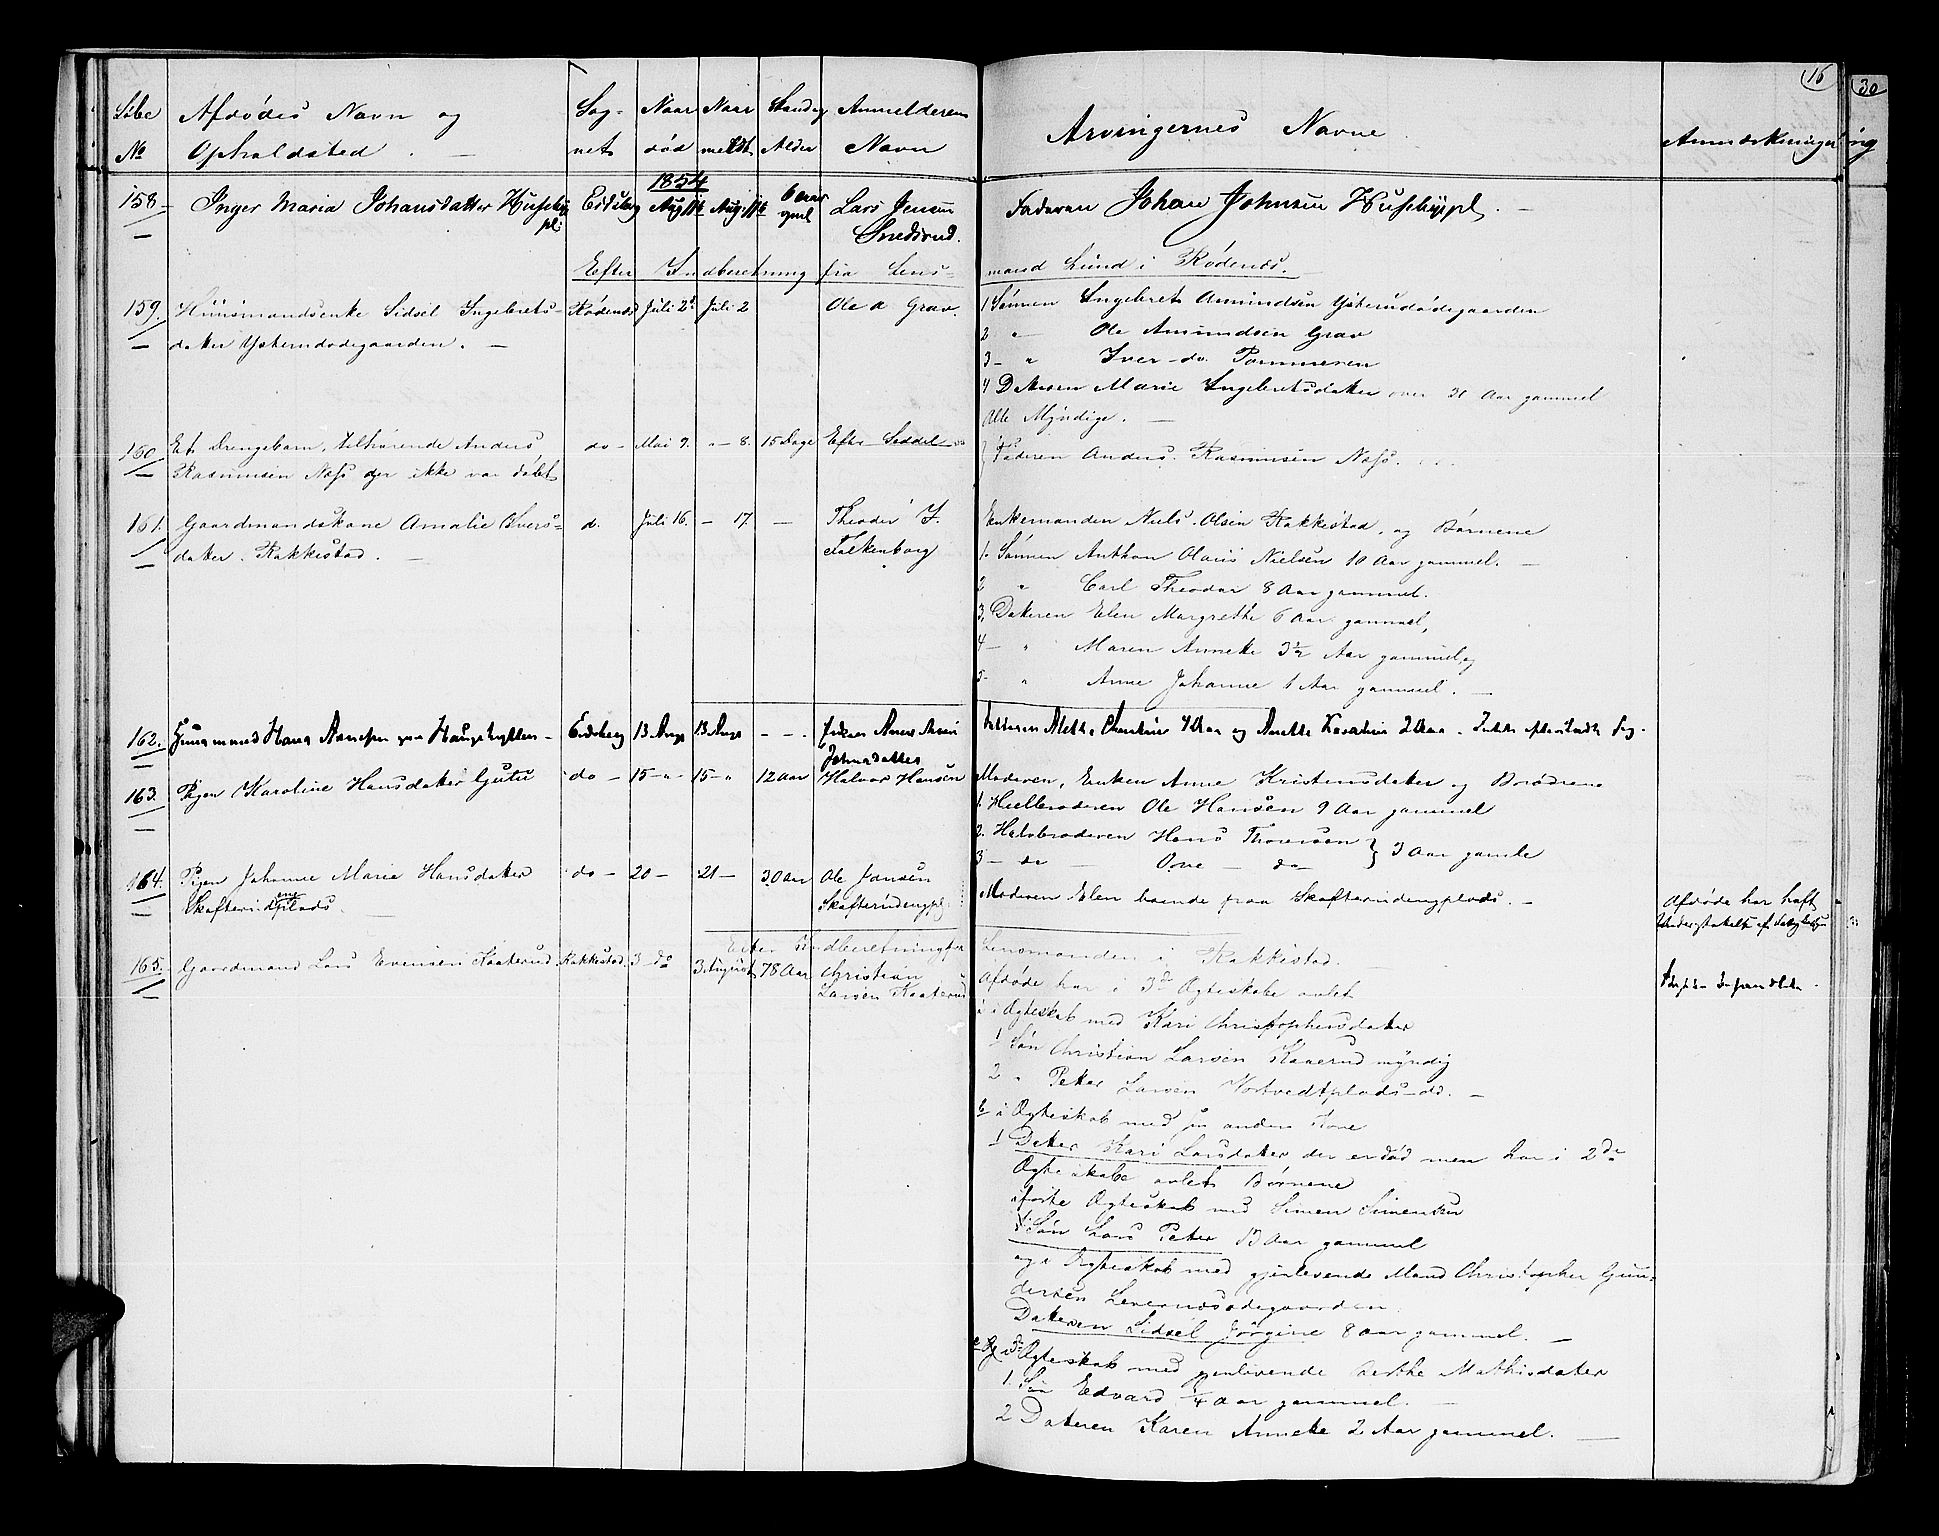 16
30
Løbe No
Afdødes Navn og Opholdsted. —
Sog- net
Naar død
Naar meldt
Stand og Alder
Anmelderens Navn
Arvingernes Navne
Anmærkninger
1854
158 Inger Maria Johansdatter Huseby pl: Eidsberg Aug 16 Aug: 16 6 aar gml Lars Jensen Snedsrud.
Faderen Johan Johnsen Husebypl. —
Efter Indberetning fra Lens-
mand Lund i Rødenæs.
159. Huusmandsenke Sidsel Ingebrets- Rødenæs Juli 2 Juli 2 Ole A Grav.
datter Ysterudødegaarden. —
1 Sønnen Ingebret Amundsen Ysterudødegaarden
2 " Ole Amundsen Grav
3 - " Iver do. Pommeren
4 Datteren Marie Ingebretsdatter over 30 Aar gammel
Alle Myndige. —
160 Et Drengebarn, tilhørende Anders do - Mai 9. " 8. 15 Dage Efter Seddel
Rasmusen Næss der ikke var døbt
Faderen Anders Rasmusen Næss.
161. Gaardmandskone Amalie Ivers- d. Juli 16. - 17. — Theodor I.
datter Rakkestad. — Falkenborg
Enkemanden Niels Olsen Rakkestad, og Børnene
1. Sønnen Anthon Olaus Nielsen 10 Aar gammel. —
2 " Carl Theodor 8 Aar gammel.
3. Datteren Elen Margrethe 6 Aar gammel,
4 - " Maren Annette 3½ Aar gammel og
5 - " Anne Johanne 1 Aar gammel. —
162. Huusmand Hans Hansen Haugehytten - Eidsberg 13 Aug 13 Aug - - Enken
Johnsdatter
Mette Christine 4 Aar og Anette Karoline 2 Aar. Intet
163. Pigen Karoline Hansdatter Gutu do - 15 - " 15 - " 12 Aar Halvor Hansen
Moderen, Enken Anne Kristensdatter og Brødrene
1. Heelbroderen Ole Hansen 9 Aar gammel
2. Halvbroderen Hans Thoresen } 3 Aar gamle
3 - do - Ove - do
164. Pigen Johanne Marie Hansdatter do - 20 - 21 - 30 Aar Ole Jansen
Skafterudeneplads. — Skafterudengpl:
Moderen Elen boende paa Skafterudengplads. —
Afdøde har haft
Understøttelse af
Efter Indberetning fra
Lensmanden i Rakkestad.
165. Gaardmand Lars Evensen Kaaterud Rakkestad 3 - do 3 August 78 Aar Christian
Larsen Kaaterud
Afdøde har i 3de Ægteskabe avlet
i Ægteskab med Kari Christophersdatter
1 Søn Christian Larsen Kaaterud myndig
2 " Petter Larsen Hostvedtplads do. —
b i Ægteskab med sin anden Kone
1 Datter Kari Larsdatter der er død men har i 2de
Ægteskabe avlet Børnene
i første Ægteskab med Simen Simensen
1 Søn Lars Peter 13 Aar gammel
og i Ægteskab med gjenlevende Mand Christopher Gun-
dersen Levernæsødegaarden.
Datteren Sidsel Jørgine 8 Aar gammel. —
c Og i 3de Ægteskab med gjenlevende Berthe Mathisdatter
1. Søn Edvard ¼ Aar gammel. —
2 Datteren Karen Annette 2 Aar gammel. —